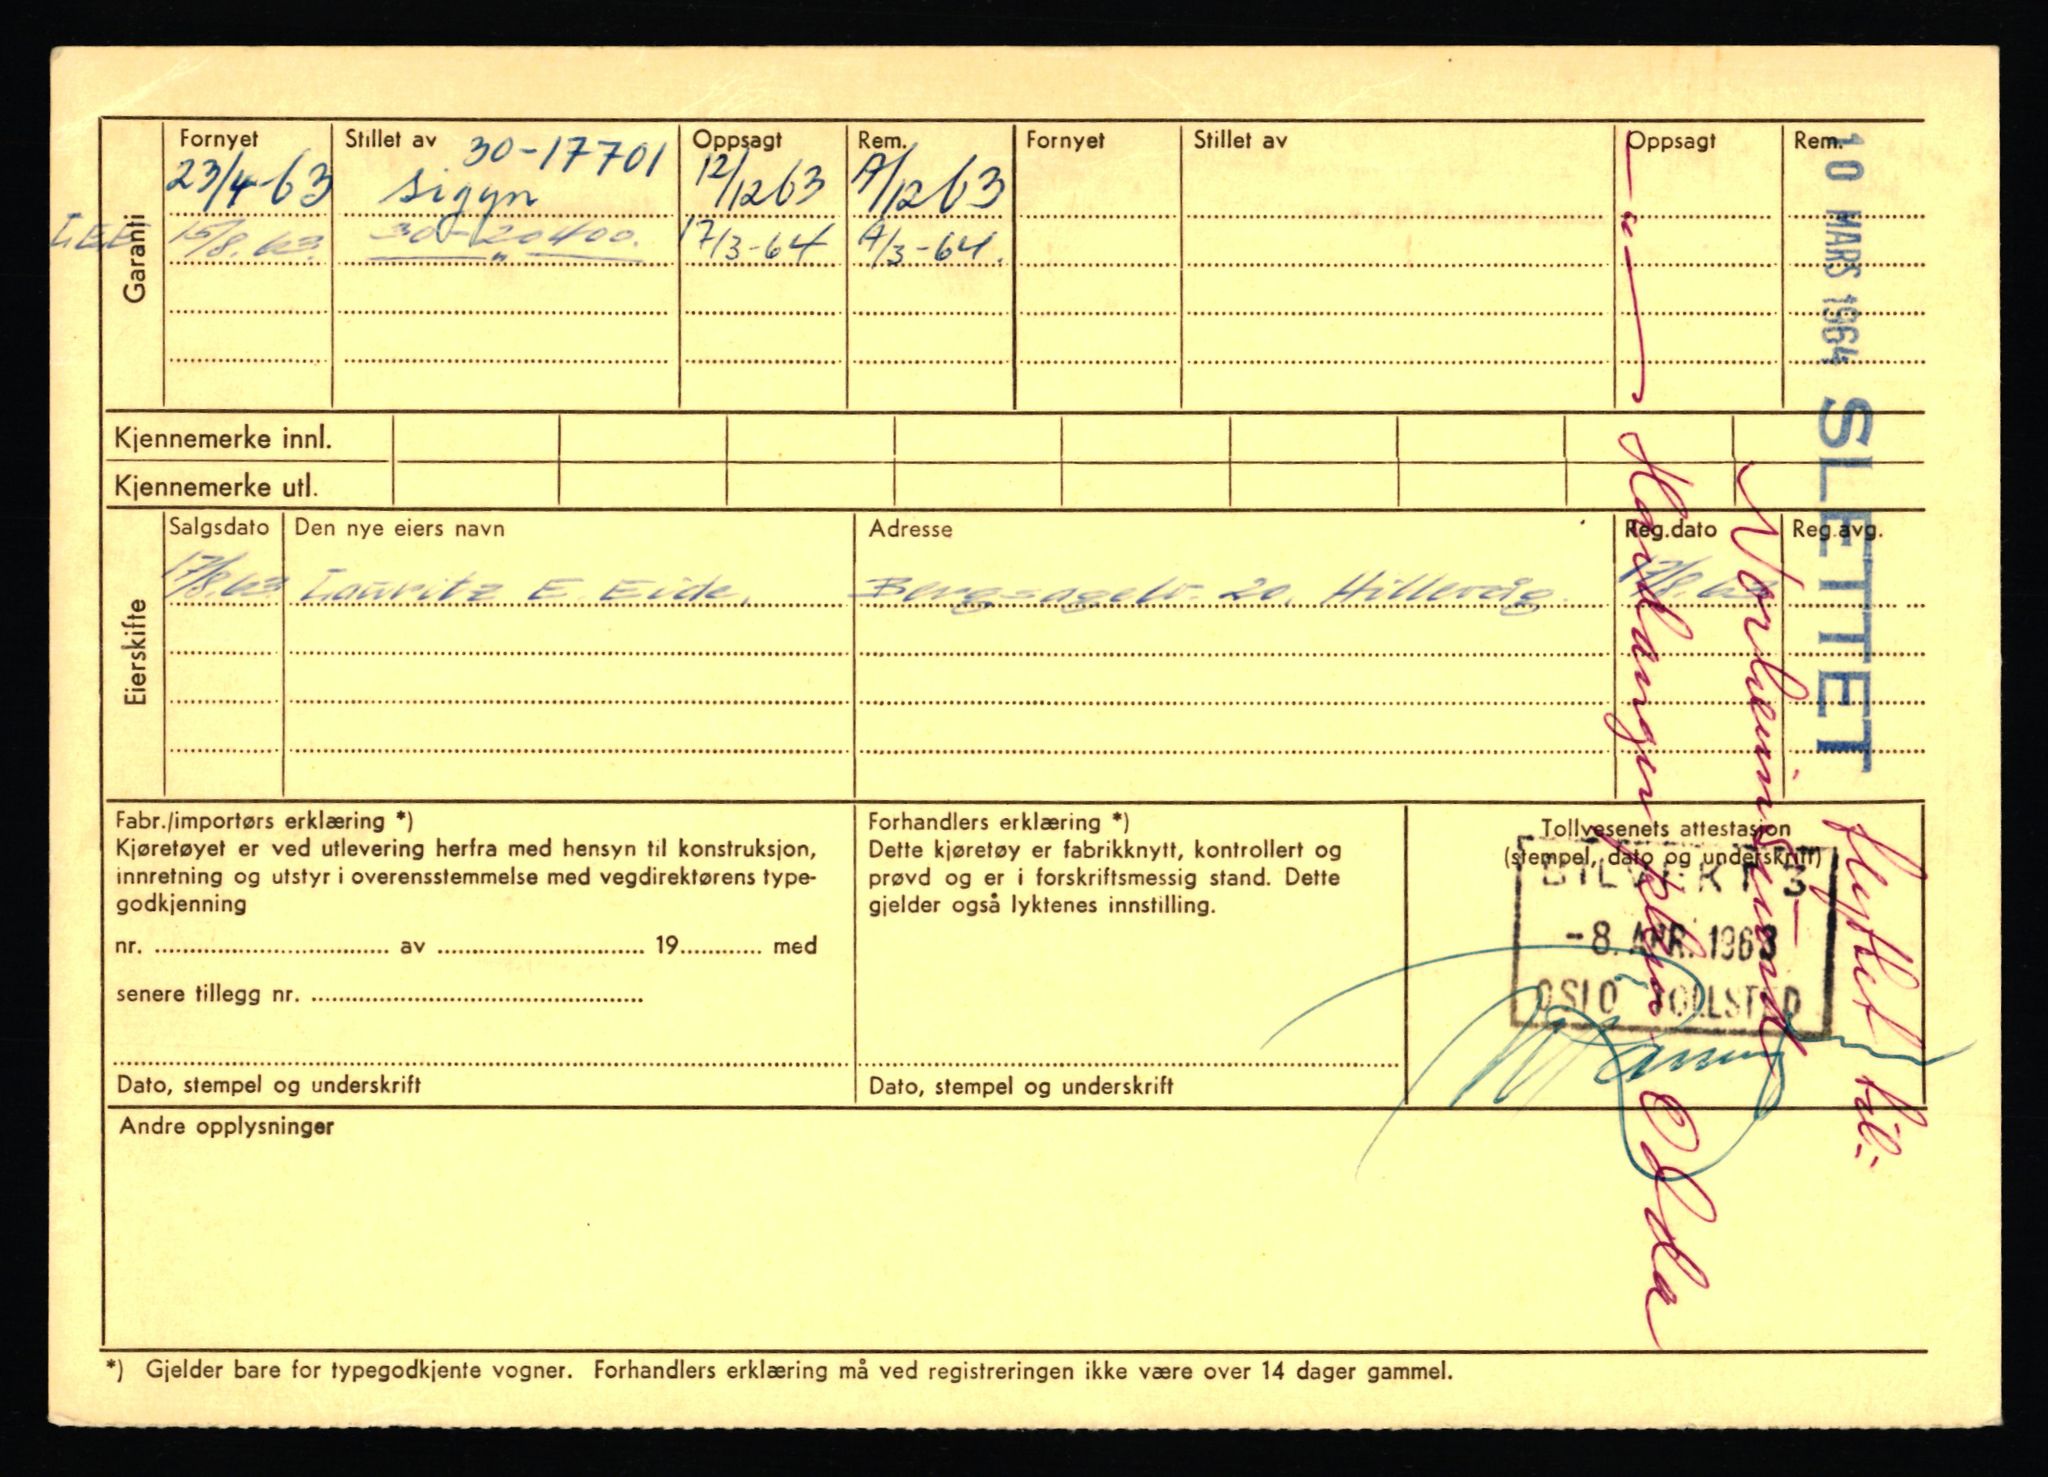 Garanti
Fornyet Stillet av Oppsagt Rem. Fornyet Stillet av Oppsagt Rem.
30-17701
23/4-63 Sigyn 12/12 63 A/12 63
15/8.63. 30-20400. 17/3-64 A/3-64.
—„—
Kjennemerke innl.
Kjennemerke utl.
Eierskifte
Salgsdato Den nye eiers navn Adresse Reg.dato Reg.avg.
17/8.63 Lauritz E. Eide. Bergsagelv. 20, Hillevåg. 17/8.63
Fabr./importørs erklæring *)
Kjøretøyet er ved utlevering herfra med hensyn til konstruksjon,
innretning og utstyr i overensstemmelse med vegdirektørens type-
godkjenning
nr. av 19 med
senere tillegg nr.
Dato, stempel og underskrift
Forhandlers erklæring *)
Dette kjøretøy er fabrikknytt, kontrollert og
prøvd og er i forskriftsmessig stand. Dette
gjelder også lyktenes innstilling.
Dato, stempel og underskrift
Tollvesenets attestasjon
(stempel, dato og underskrift)
BILVERK 3
-8. APR. 1963
OSLO TOLLSTED
Andre opplysninger
*) Gjelder bare for typegodkjente vogner. Forhandlers erklæring må ved registreringen ikke være over 14 dager gammel.
10 MARS 1964 SLETTET
Flyttet til:
—„— Hardanger Odda